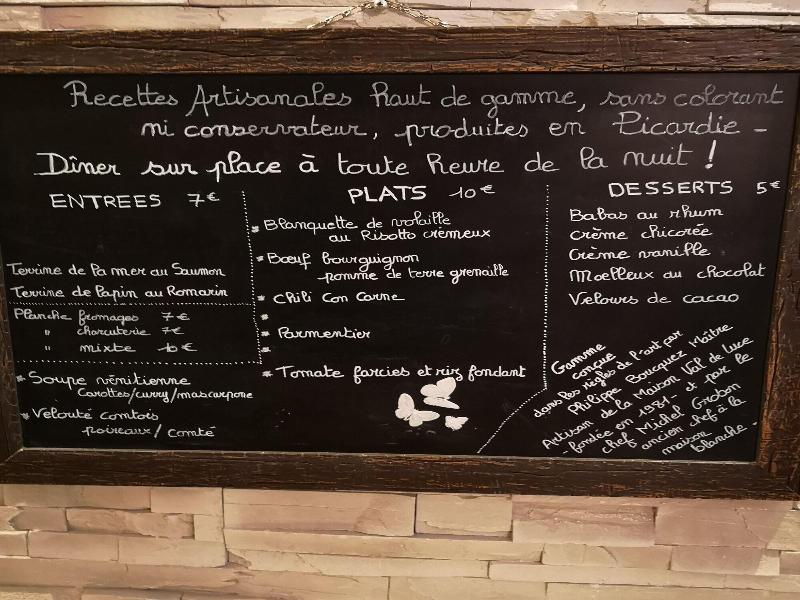 Recettes Artisanales haut de gamme, sans colorant
ni conservateur, produites en Picardie -
Dîner sur place à toute heure de la nuit !
ENTREES 7€
Terrine de la mer au Saumon
Terrine de lapin au Romarin
Planche fromages 7€
" charcuterie 7€
" mixte 10€
* Soupe vénitienne
Carottes/curry/mascarpone
* Velouté comtois
poireaux/comté
PLATS 10€
* Blanquette de volaille
au Risotto crèmeux
* Bœuf bourguignon
pomme de terre grenaille
* Chili Con Carne
*
* Parmentier
*
* Tomate farcies et riz fondant
DESSERTS 5€
Babas au rhum
Crème chicorée
Crème vanille
Moelleux au chocolat
Velours de cacao
Gamme
conçue
dans les règles de l'art par
Philippe Boucquez Maître
Artisan de la Maison Val de Luce
- fondée en 1991 - et par le
chef Michel Grobon
ancien chef à la
maison
blanche -